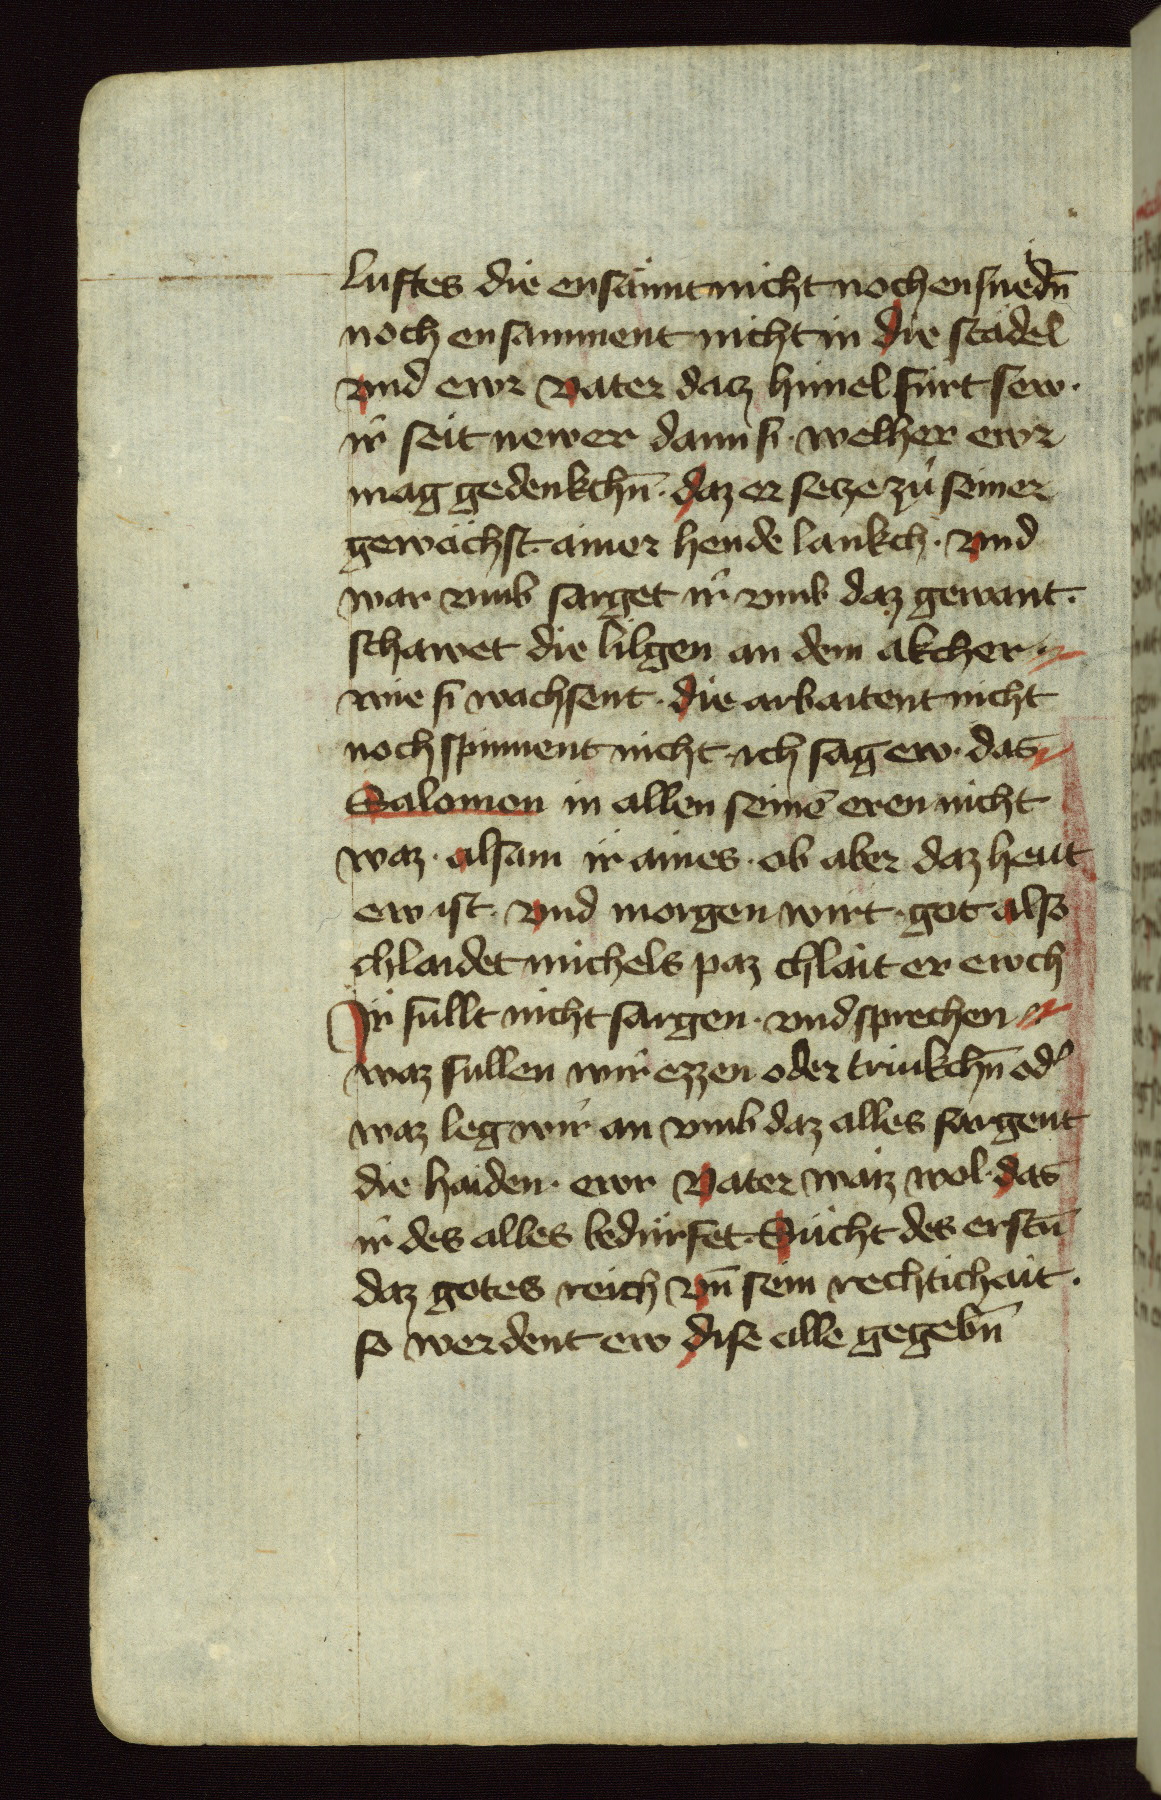 luftes die ensäint nicht noch ensnidn̄
noch ensamment nicht in die städel
vnd ewr vater datz himel fürt sew·
ir seit newer dann si· welher ewr
mag gedenkchn̄· daz er setze zů seiner
gewächst· ainer hende lankch· vnd
war vmb sarget ir vmb daz gewant·
schawet die lilgen an dem akcher·
wie si wachsent· die arbaitent nicht
noch spinnent nicht· ich sag ew· das
Salomon in allen seinē eren nicht
waz· alsam ir aines· ob aber daz heut
ew ist· vnd morgen wirt· got also
chlaidet michels paz chlait er ewch
Ir sullt nicht sargen· vnd sprechen
waz sullen wir ezzen oder trinkchn̄ od᾽
waz leg wir an vmb daz alles sargent
die haiden· ewr vater waiz wol· das
ir des alles bedürfet· Sücht des erstn̄
daz gotes reich vn̄ sein rechtichait·
so werdent ew dise alle gegebn̄